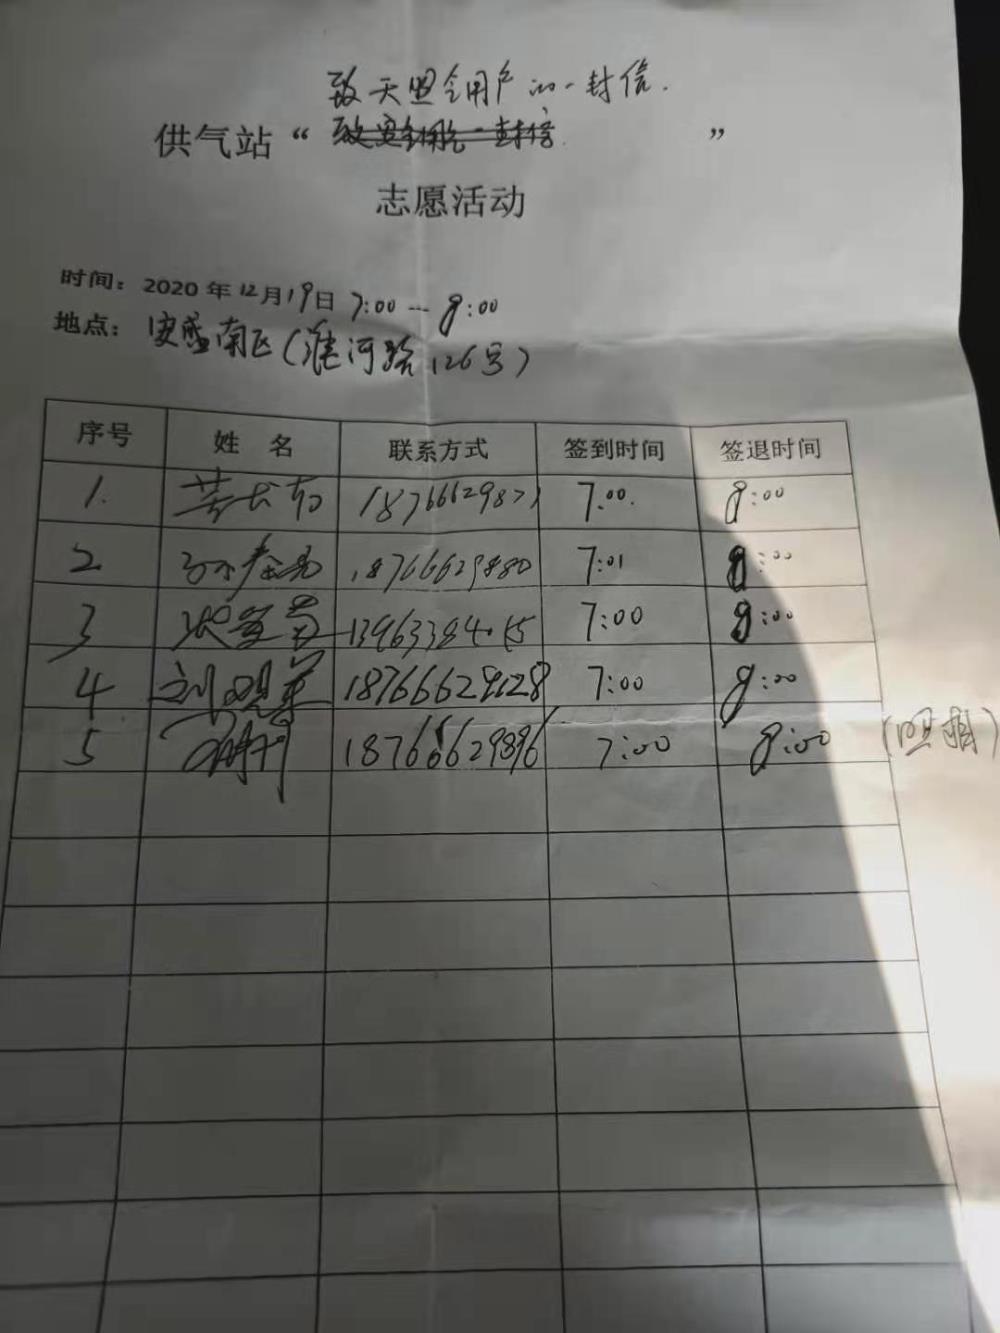 致天盟会用户的一封信.
供气站“ ”
志愿活动
时间：2020年12月19日 7:00 — 8:00
地点：安盛南区(淮河路126号)
序号 姓 名 联系方式 签到时间 签退时间
1. 18766629871 7:00. 8:00
2 18766629880 7:01 8:00
3 7:00 8:00
4 18766629128 7:00 8:00
5 18766629896 7:00 8:00 (照相)